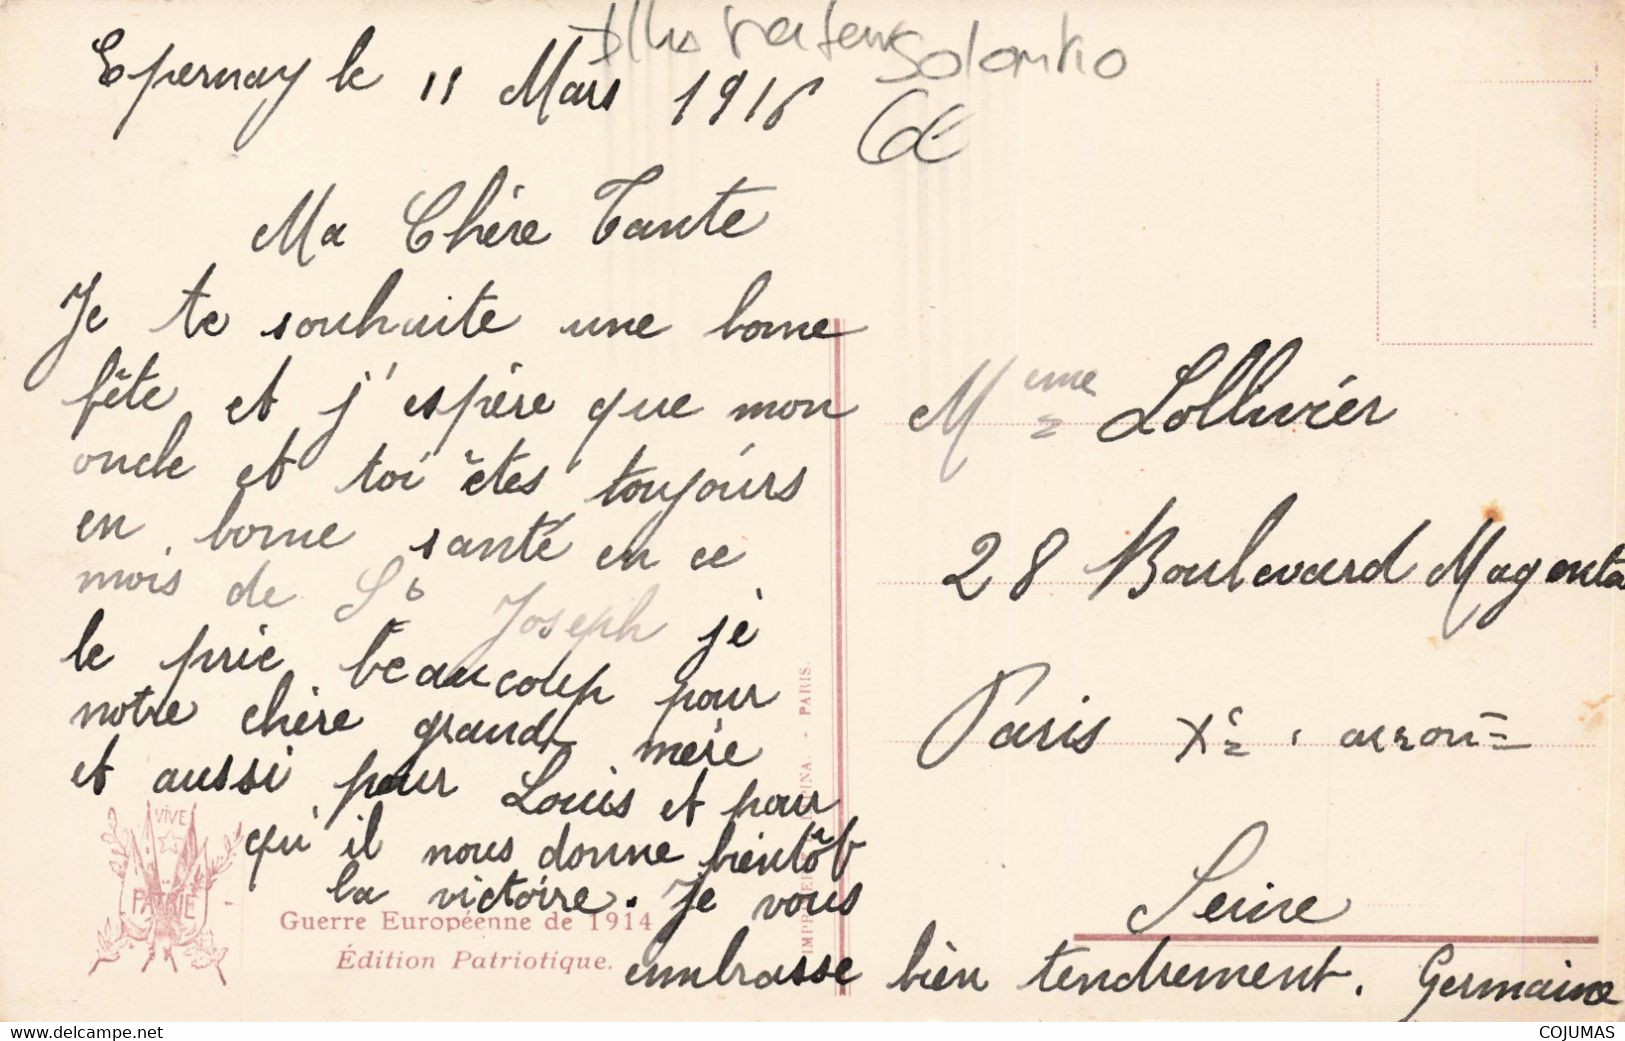 Illustrateur Solomko
6€
Epernay le 11 Mars 1916
Ma Chère Tante
Je te souhaite une bonne
fête et j'espère que mon
oncle et toi êtes toujours
en bonne santé en ce
mois de St Joseph je
le prie beaucoup pour
notre chère grand mère
et aussi pour Louis et pour
qu'il nous donne bientôt
la victoire. Je vous
embrasse bien tendrement. Germaine
Mme Lollivier
28 Boulevard Magenta
Paris Xe arron
Seine
VIVE
PATRIE
Guerre Européenne de 1914
Édition Patriotique.
PARIS.
www.delcampe.net
COJUMAS